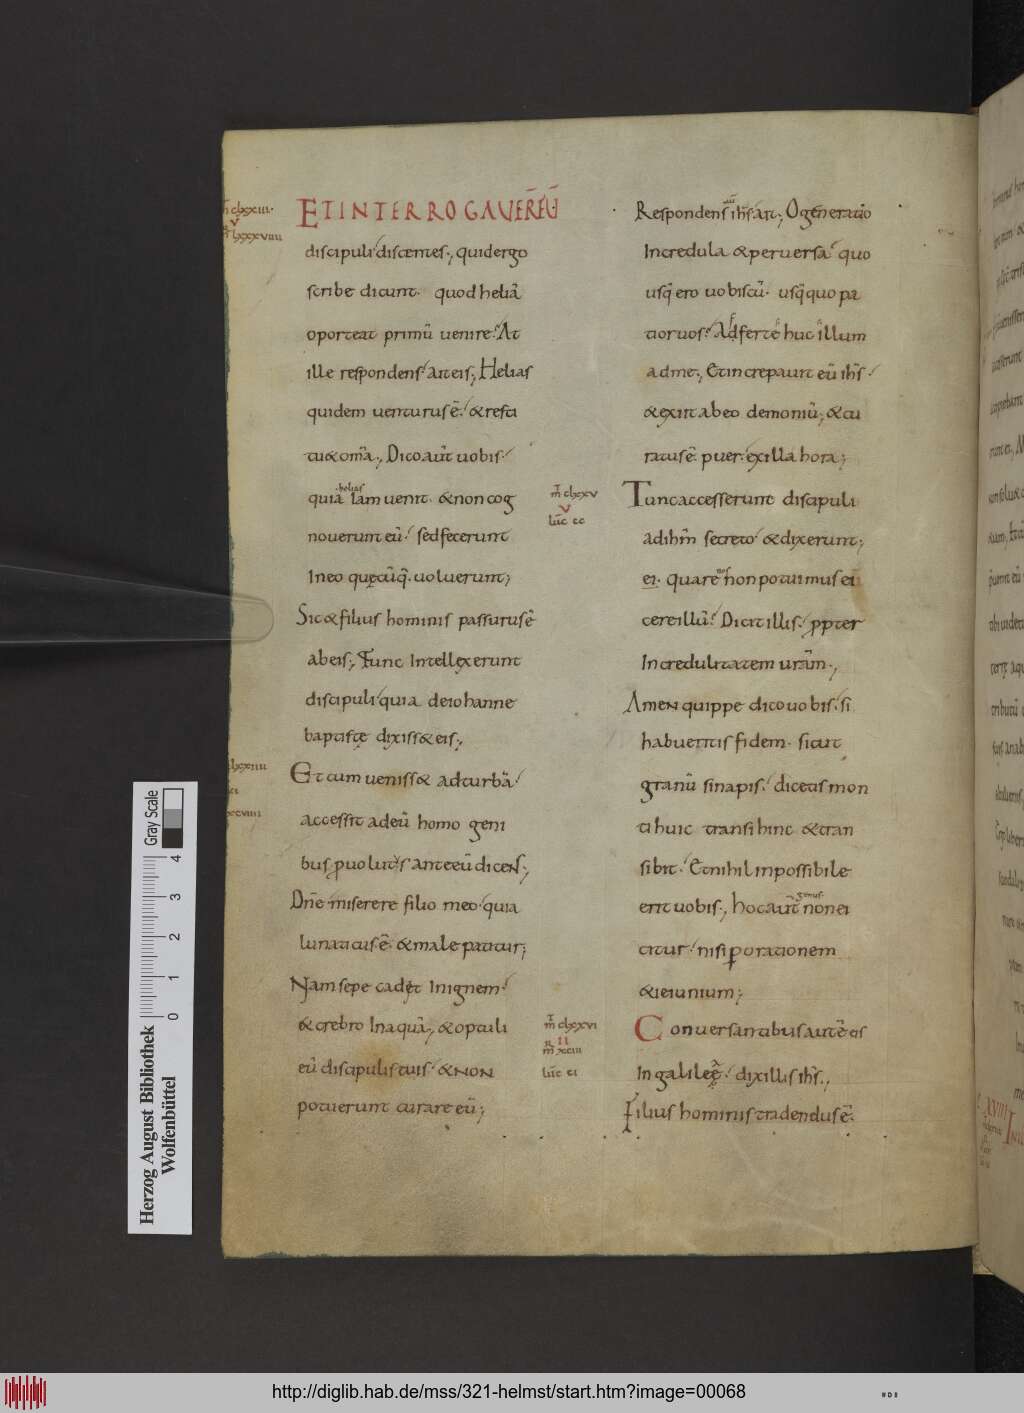 ET INTERROGAVER̄ EŪ
discipuli dicentes; quid ergo
scribę dicunt. quod heliā
oporteat primū uenire. At
ille respondens ait eis; Helias
quidem uenturus ē. & resti
tu& om̄a; Dico aut̄ uobis.
quia helias iam uenit. & non cog
nouerunt eū. sed fecerunt
In eo quęcūq. uoluerunt;
Sic & filius hominis passurus ē
ab eis; Tunc Intellexerunt
discipuli quia de iohanne
baptistę dixiss& eis;
Et cum ueniss& ad turbā
accessit ad eū homo geni
bus puolutis ante eū dicens;
Dn̄e miserere filio meo. quia
lunaticus ē. & male patitur;
Nam sepe cadet In ignem
& crebro In aquā; & optuli
eū discipulis tuis. & NON
potuerunt curare eū;
m̄ clxxv
V
luc̄ cc
m̄ clxxvi
II
m̄ xciii
luc̄ ci
Respondens aut̄ ih̄s ait; O generatio
Incredula & peruersa quo
usq̄ ero uobiscū. usq̄quo pa
tior uos. Adferte huc illum
ad me; Et increpauit eū ih̄s
& exiit ab eo demoniū; & cu
ratus ē puer. ex illa hora;
Tunc accesserunt discipuli
ad ih̄m secreto & dixerunt;
ei. quare nos non potuimus ei
cere illū. Dicit illis. ppter
Incredulitatem urām;
Amen quippe dico uobis. si
habueritis fidem. sicut
granū sinapis. dicetis mon
ti huic transi hinc & tran
sibit. Et nihil inpossibile
erit uobis; hoc aut̄ genus non ei
citur nisi p orationem
& ieiunium;
Conuersantibus autē eis
In galileā. dixit illis ih̄s;
Filius hominis tradendus ē.
Gray Scale
0 1 2 3 4
Herzog August Bibliothek
Wolfenbüttel
http://diglib.hab.de/mss/321-helmst/start.htm?image=00068